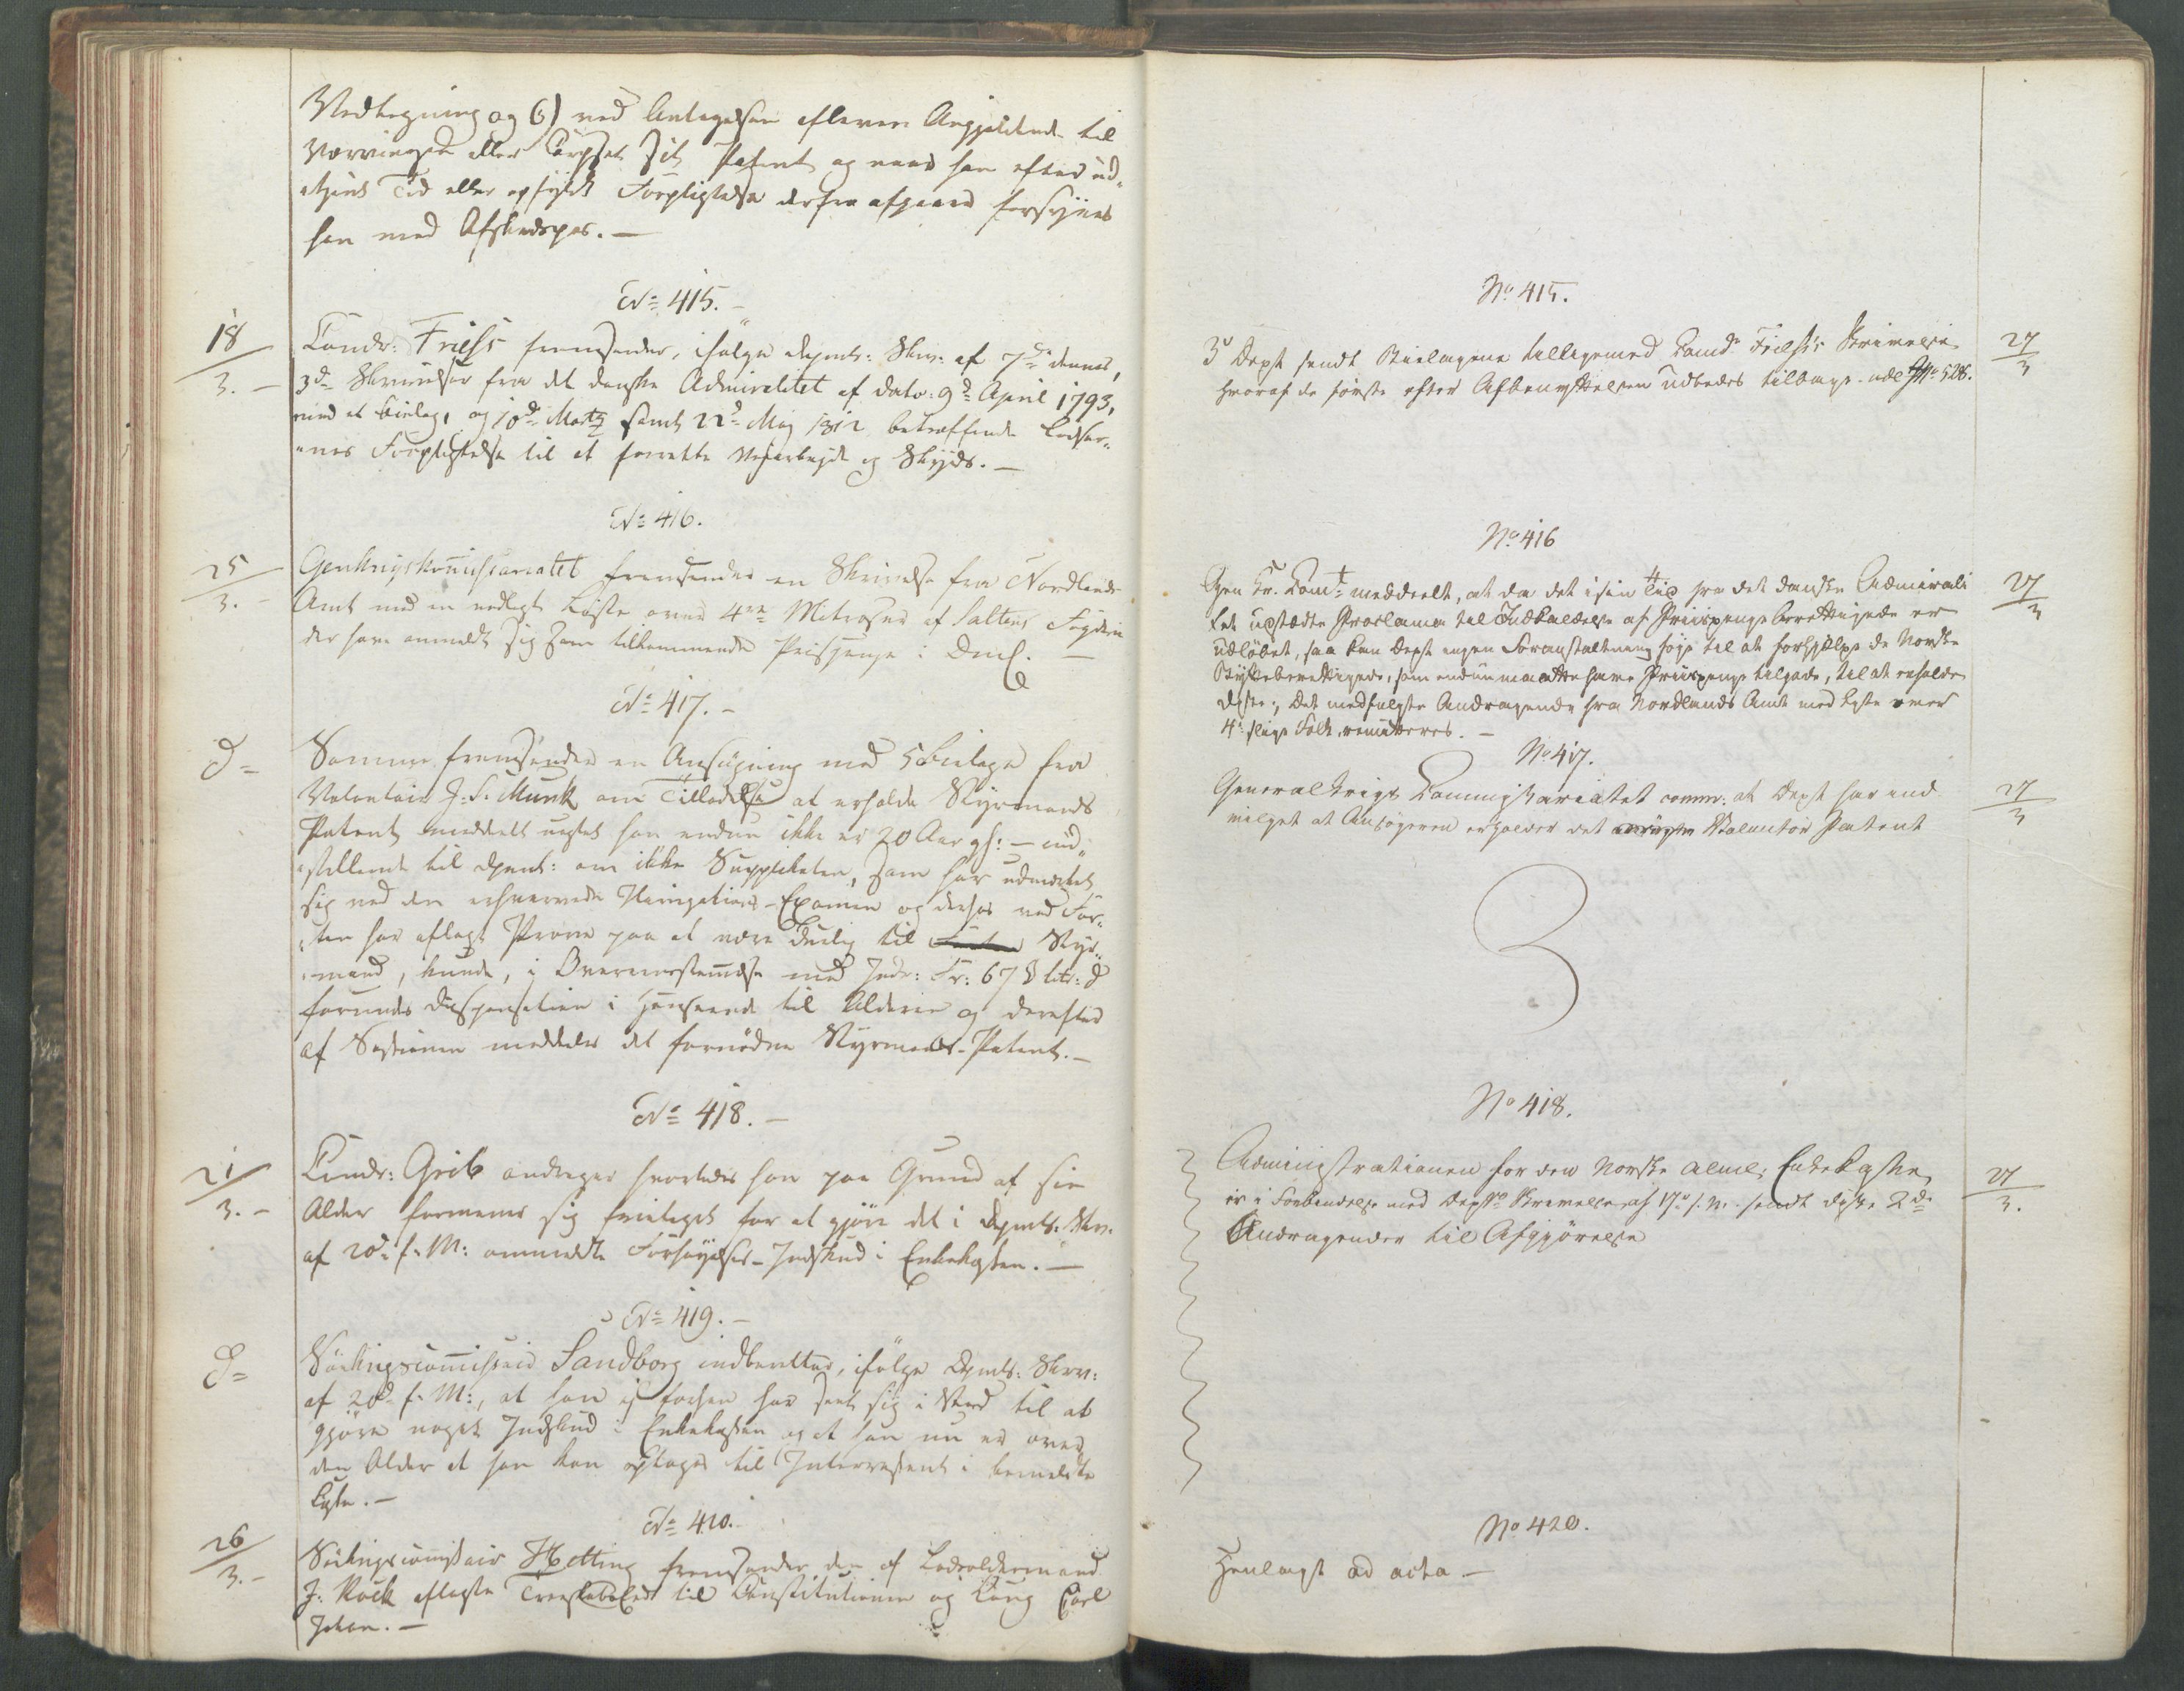 Vedtegning og 6) ved Antagelsen afleverer Angjældende til
Værvingen eller Corpset sit Patent og naar han efter ud-
tjent Tid eller opfyldt Forpligtelse derfra afgaaer forsynes
han med Afskedspas. —
No 415. —
18/3. —
Comdr: Friess fremsender, ifølge Dpmts: Skriv: af 7de dennes,
3de Skrivelser fra det danske Admiralitet af Dato: 9de April 1793,
med et Bielag, og 10de Martz samt 22de May 1812 betræffende Lodser-
nes Forpligtelse til at forrette Veiarbeyde og Skyds. —
No 416.
25/3. —
Genkrigskommissariatet fremsender en Skrivelse fra Nordlands
Amt med en vedlagt Liste over 4re Matroser af Saltens Fogderie
der have anmeldt sig som tilkommende Prisepenge i Dmk. —
No 417. —
do
Samme fremsender en Ansøgning med 5 Bielage fra
Volontair J. S. Munk om Tilladelse at erholde Styrmands
Patent meddelt uagtet han endnu ikke er 20 Aar gl: — ind-
stillende til Dpmt: om ikke Supplikanten, som har udmærket
sig ved den erhvervede Navigations-Examen og derhos ved Far-
ten har aflagt Prøve paa at være duelig til Styr-
mand, kunde, i Overeensstemmelse med Indr: Fr: 67 § litr: d
forundes Dispensation i Henseende til Alderen og derefter
af Sessionen meddeles det fornødne Styrmands-Patent. —
No 418. —
21/3. —
Comdr: Grib andrager hvorledes han paa Grund af sin
Alder formener sig frietaget for at gjøre det i Dpmts: Skr:
af 20de f. M: ommeldte Forhøyelses-Indskud i Enkekassen. —
No 419. —
do
Søkrigscommissair Sandborg indberetter, ifølge Dpmts: Skriv:
af 20de f. M:, at han ei forhen har seet sig i Stand til at
gjøre noget Indskud i Enkekassen og at han nu er over
den Alder at han kan optages til Interressent i bemeldte
Casse. —
No 420.
26/3. —
Søkrigscommissair Hetting fremsender den af Lodsoldermand
J. Rock aflagte TroeskabsEed til Constitutionen og Kong Carl
Johan. —
No 415.
3de Dept sendt Bielagene tilligemed Comdr Friess's Skrivelse
hvoraf de første efter Afbenyttelsen udbedes tilbage. vel J No 528.
27/3
No 416
Gen Kr. Komt: meddeelt, at da det i sin Tid fra det danske Admirali
tet udstædte Proclama til Indkaldelse af Priispenge Berettigede er
udløbet, saa kan Dept ingen Foranstaltning føye til at forhjelpe de Norske
Bytteberettigede, som endnu maatte have Priispenge tilgode, til at erholde
disse; Det medfulgte Andragende fra Nordlands Amt med Liste over
4: slige Folk, remitteres. —
27/3
No 417.
GeneralKrigs Commissariatet comm: at Dept har ind
vilget at Ansøgeren erholder det Volontør Patent
27/3
No 418.
Administrationen for den Norske almdl: Enkekasse
er i Forbindelse med Depts Skrivelse af 17de f. M. sendt disse 2de
Andragender til Afgjørelse
27/3.
No 420.
Henlagt ad acta —